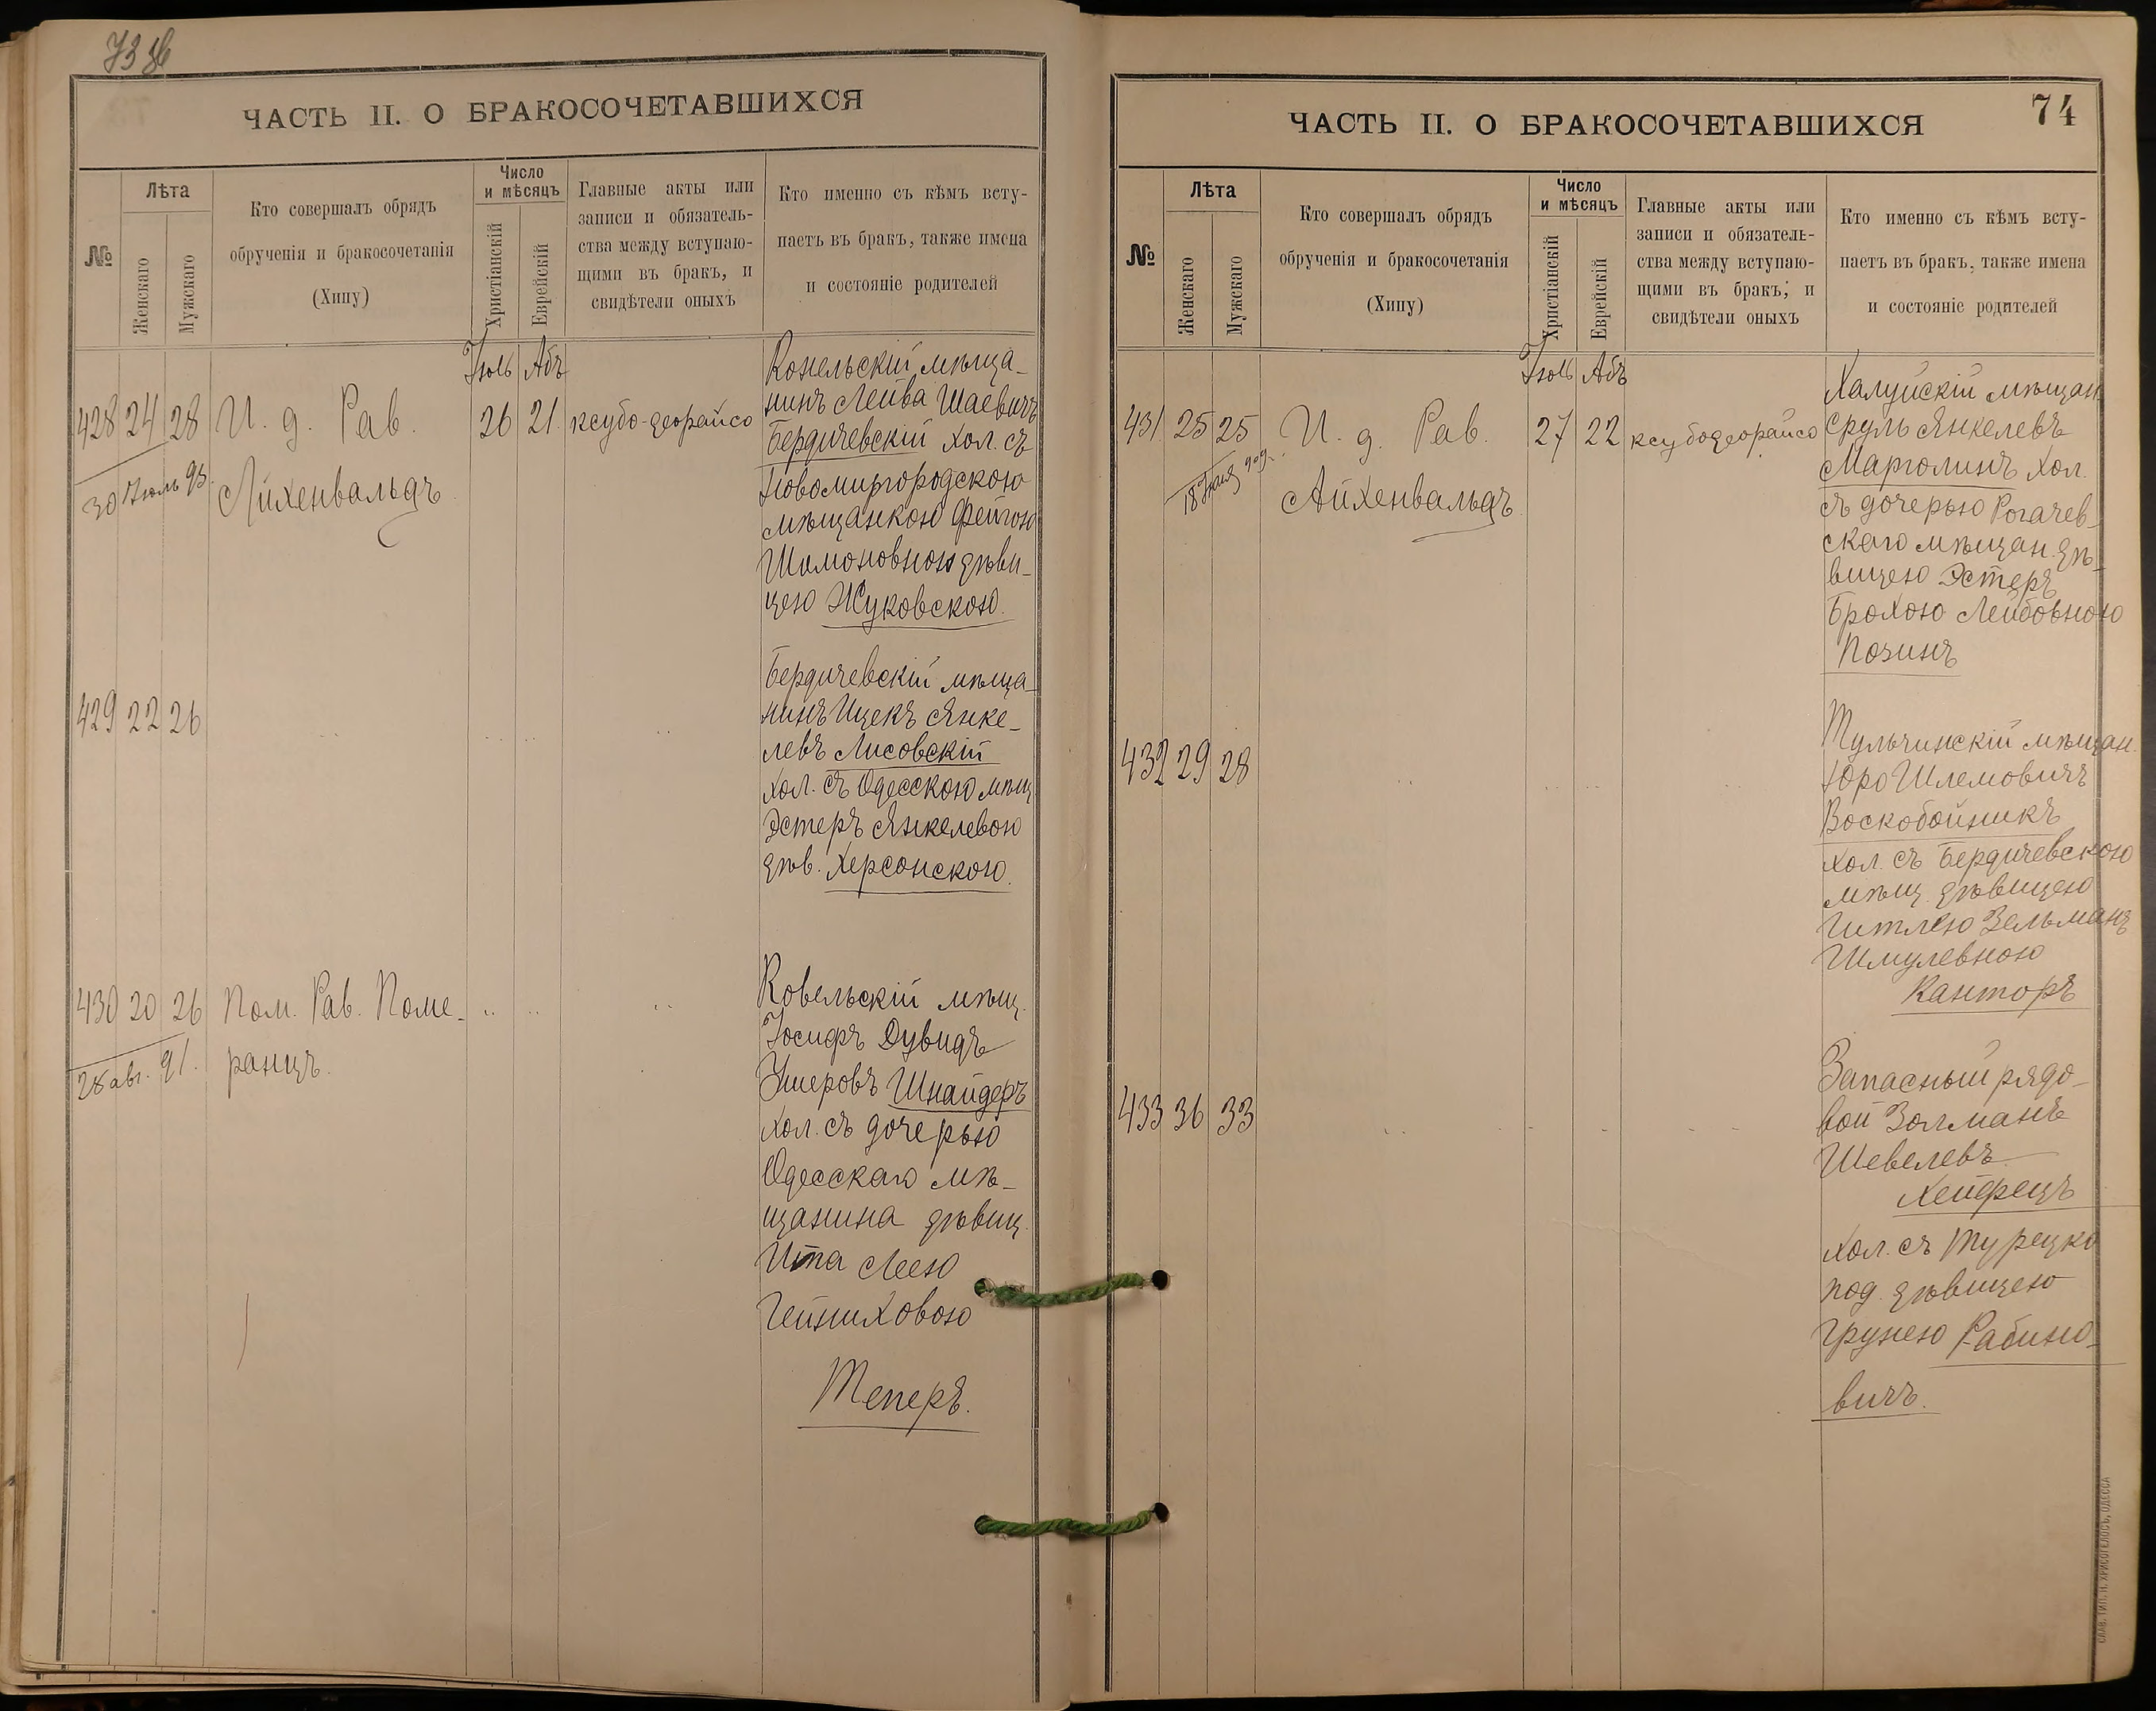 ЧАСТЬ II. О БРАКОСОЧЕТАВШИХСЯ
№
Лѣта
Женскаго
Мужскаго
Кто совершалъ обрядъ
обрученія и бракосочетанія
(Хипу)
Число
и мѣсяцъ
Христіанскій
Еврейскій
Главные акты или
записи и обязатель-
ства между вступаю-
щими въ бракъ, и
свидѣтели оныхъ
Кто именно съ кѣмъ всту-
паетъ въ бракъ, также имена
и состояніе родителей
428 24 28
30 Іюль 93.
И. д. Рав.
Айхенвальдъ
Іюль Абъ
26 21
ксубо-деорайсо
Конельскій мѣща-
нинъ Лейва Шаевичъ
Бердичевскій хол. съ
Новомиргородскою
мѣщанкою Фейгою
Шимоновною дѣви-
цею Жуковскою.
429 22 26
Бердичевскій мѣща-
нинъ Ицекъ Янке-
левъ Лисовскій
хол. съ Одесскою мѣщ
Эстеръ Янкелевою
дѣв. Херсонскою.
430 20 26
28 авг. 91.
Пом. Рав. Поме-
ранцъ.
Ковельскій мѣщ.
Іосифъ Дувидъ
Ушеровъ Шнайдеръ
хол. съ дочерью
Одесскаго мѣ-
щанина дѣвиц.
Ита Леею
Гейниховою
Теперъ.
ЧАСТЬ II. О БРАКОСОЧЕТАВШИХСЯ
74
№
Лѣта
Женскаго
Мужскаго
Кто совершалъ обрядъ
обрученія и бракосочетанія
(Хипу)
Число
и мѣсяцъ
Христіанскій
Еврейскій
Главные акты или
записи и обязатель-
ства между вступаю-
щими въ бракъ, и
свидѣтели оныхъ
Кто именно съ кѣмъ всту-
паетъ въ бракъ, также имена
и состояніе родителей
431 25 25
И. д. Рав.
Айхенвальдъ
Іюль Абъ
27 22
ксубодеорайсо
Халуйскій мѣщан.
Сруль Янкелевъ
Марголинъ хол.
съ дочерью Рогачев-
скаго мѣщан. дѣ-
вицею Эстеръ
Брохою Лейбовною
Позинъ
432 29 28
Тульчинскій мѣщан.
Юро Шлемовичъ
Воскобойникъ
хол. съ Бердичевскою
мѣщ. дѣвицею
Гитлею Зельманъ
Шмулевною
Канторъ
433 36 33
Запасный рядо-
вой Золманъ
Шевелевъ
Хейфецъ
хол. съ Турецко
под. дѣвицею
Грунею Рабино-
вичъ.
СЛАВ. ТИП. Н. ХРИСОГЕЛОСЪ, ОДЕССА